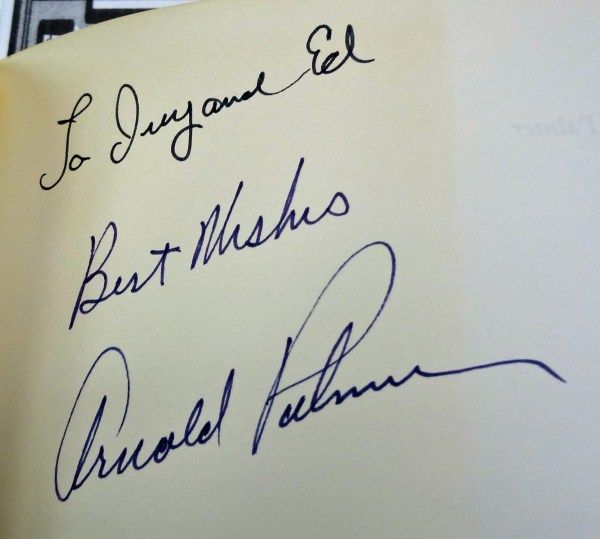 To Irey and Ed
Best Wishes
Arnold Palmer
Palmer